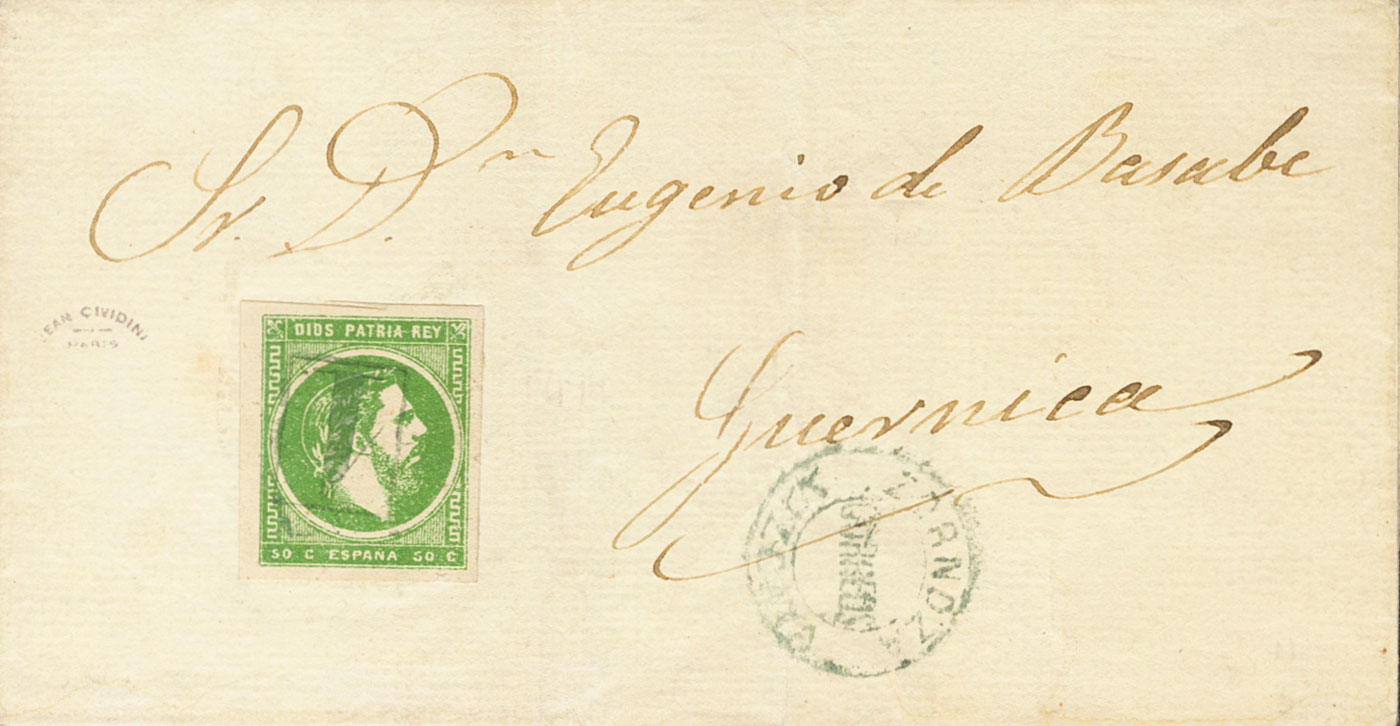 Sr. Dn Eugenio de Basabe
JEAN CIVIDINI
PARIS
DIOS PATRIA REY
50 C ESPAÑA 50 C
Guernica
VIZCAYA ZORNOZA